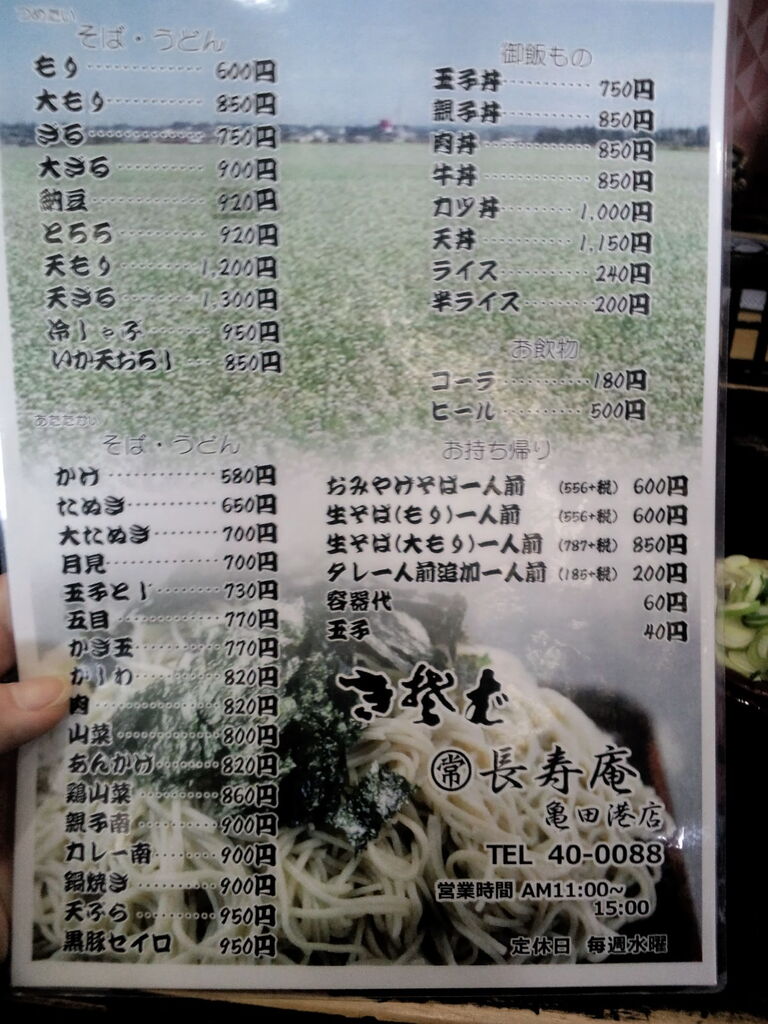 つめたい
そば・うどん
もり 600円
大もり 850円
ざる 750円
大ざる 900円
納豆 920円
とろろ 920円
天もり 1,200円
天ざる 1,300円
冷しゃぶ 950円
いか天おろし 850円
あたたかい
そば・うどん
かけ 580円
たぬき 650円
大たぬき 700円
月見 700円
玉子とじ 730円
五目 770円
かき玉 770円
かしわ 820円
肉 820円
山菜 800円
あんかけ 820円
鶏山菜 860円
親子南 900円
カレー南 900円
鍋焼き 900円
天ぷら 950円
黒豚セイロ 950円
御飯もの
玉子丼 750円
親子丼 850円
肉丼 850円
牛丼 850円
カツ丼 1,000円
天丼 1,150円
ライス 240円
半ライス 200円
お飲物
コーラ 180円
ビール 500円
お持ち帰り
おみやげそば一人前 (556+税) 600円
生そば(もり)一人前 (556+税) 600円
生そば(大もり)一人前 (787+税) 850円
タレ一人前追加一人前 (185+税) 200円
容器代 60円
玉子 40円
㊎常 長寿庵
亀田港店
TEL 40-0088
営業時間 AM11:00～
15:00
定休日 毎週水曜